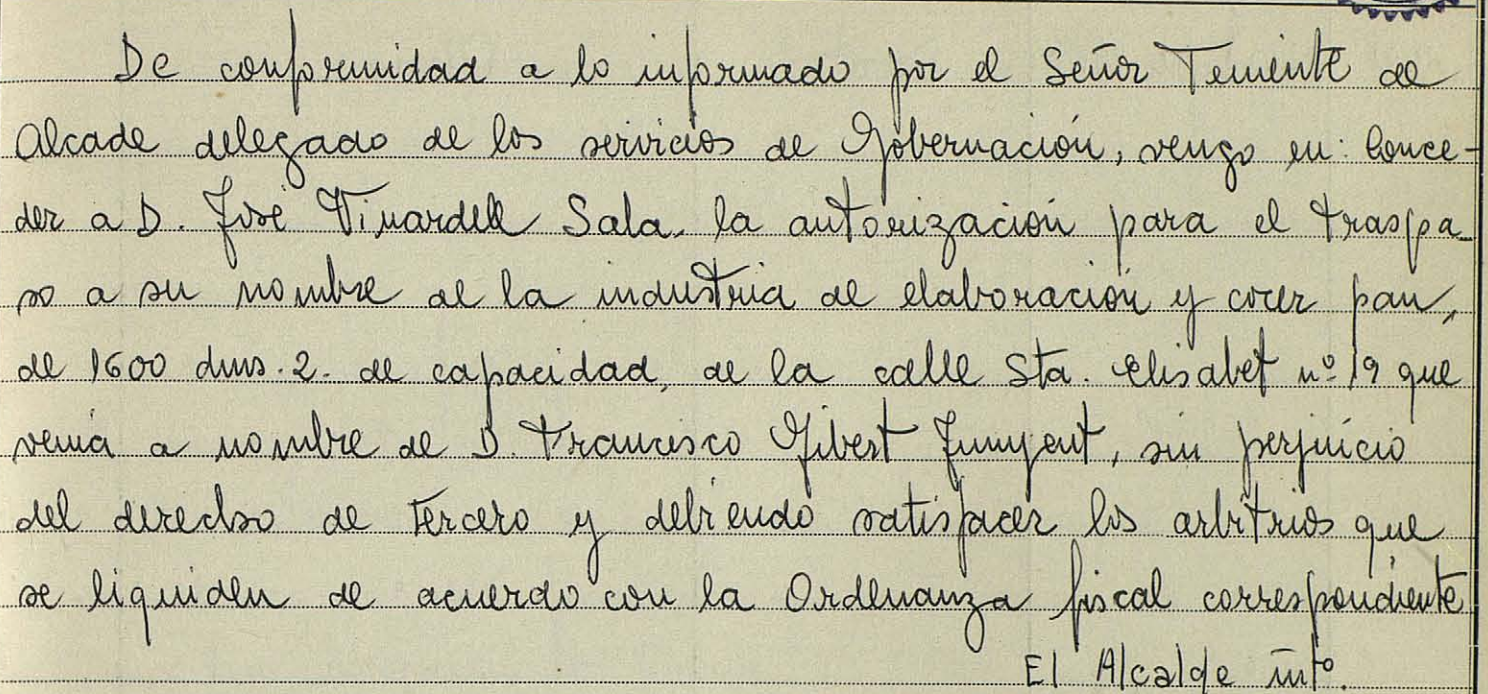 De conformidad a lo informado por el Señor Teniente de
Alcade delegado de los servicios de Gobernación, vengo en: Conce-
der a D. José Vinardell Sala, la autorización para el traspa-
so a su nombre de la industria de elaboración y cocer pan,
de 1600 dms. 2. de capacidad, de la calle Sta. Elisabet nº 19 que
venía a nombre de D. Francisco Gibert Junyent, sin perjuicio
del derecho de tercero y debiendo satisfacer los arbitrios que
se liquiden de acuerdo con la Ordenanza fiscal correspondiente
El Alcalde intº.